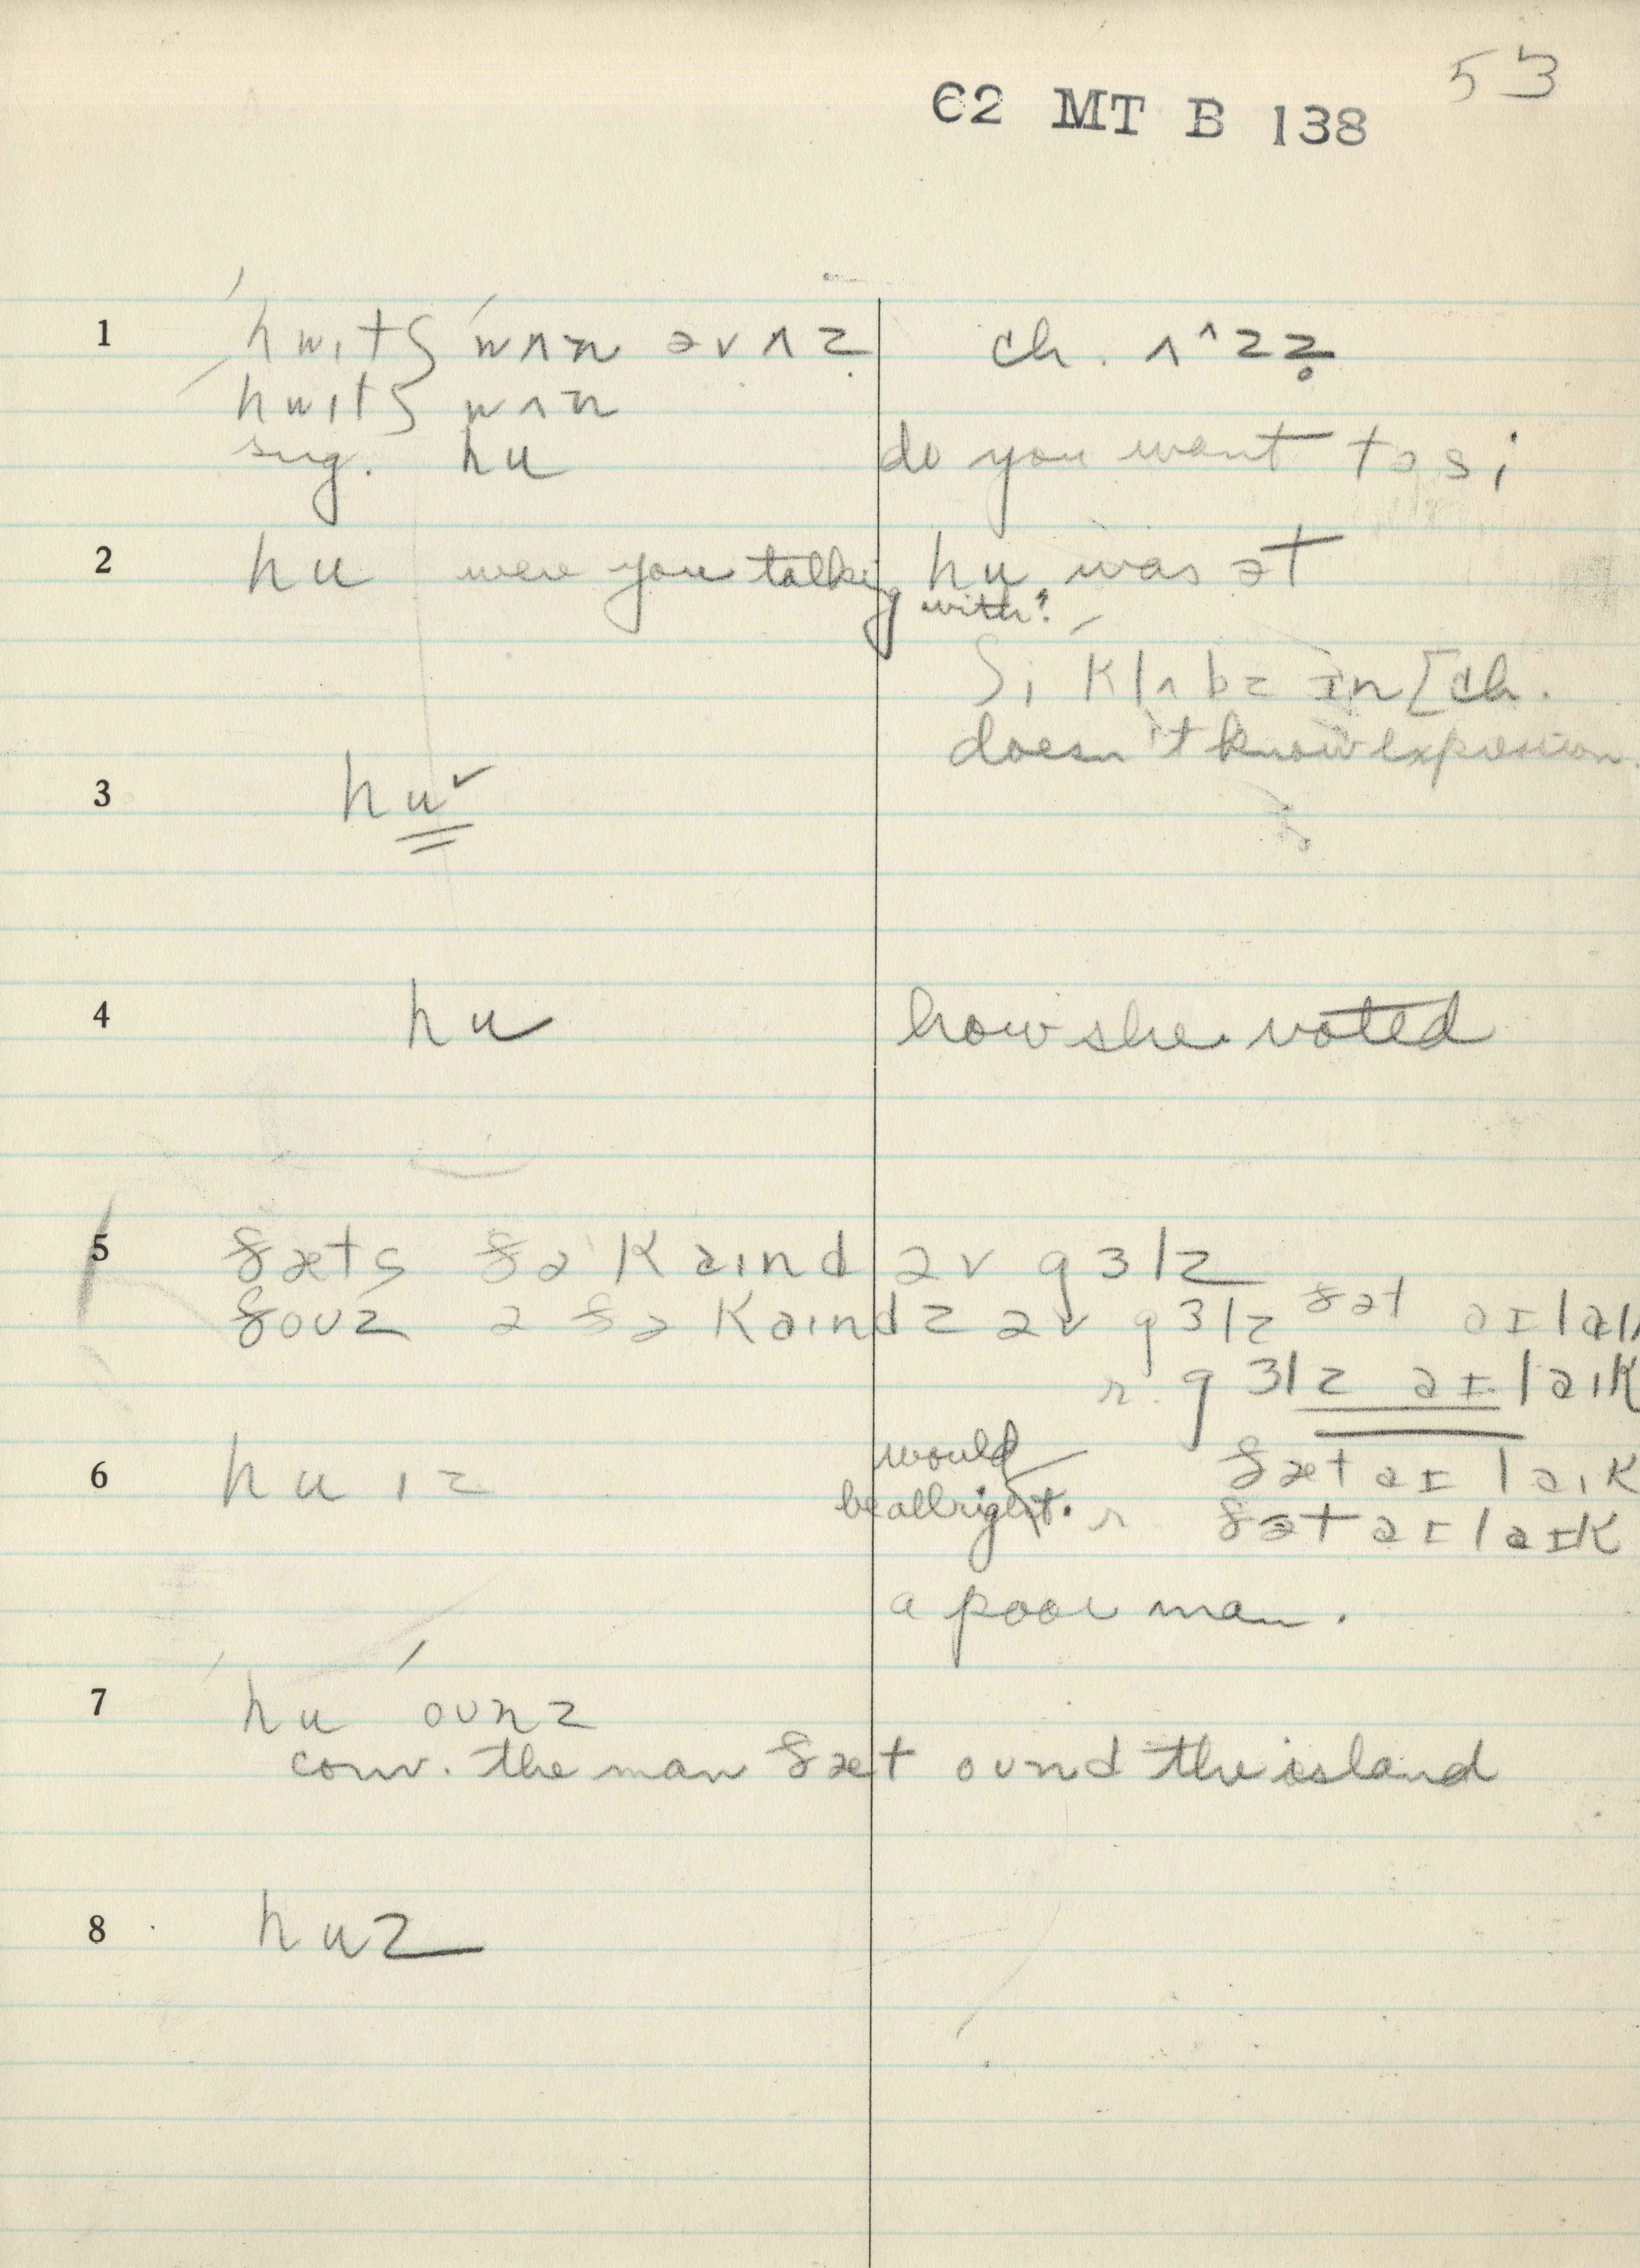 53
62 MT B 138
1 ˈhwɪtʃ ˈwʌn əv ʌz̥ ch. ʌ^zz̥
hwɪtʃ wʌn
sug. hu do you want tə si
2 hu were you talking with? hu was ət
ʃi klʌbz ɪn [ch.
doesn't know expression.
3 hu ✓
4 hu how she voted
5 ðæts ðə kaɪnd əv gɜlz
ðoʊz ə ðə kaɪndz əv gɜlz ðət aɪ laɪk
r. gɜlz aɪ laɪk
6 hu ɪz would be allright. ðæt aɪ laɪk
r ðət aɪ laɪk
a poor man.
7 hu ˈoʊnz
conv. the man ðæt oʊnd the island
8 huz